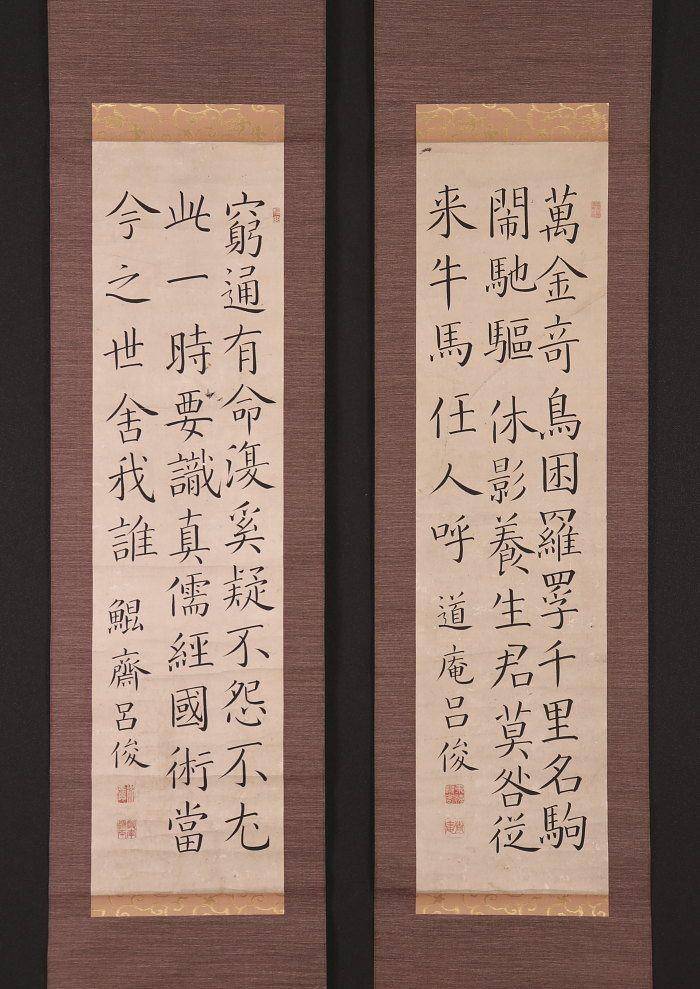 萬金奇鳥困羅罦千里名駒
閙馳驅休影養生君莫咎従
来牛馬任人呼 道庵呂俊
窮通有命復奚疑不怨不尤
此一時要識真儒経國術當
今之世舍我誰 鯤齋呂俊